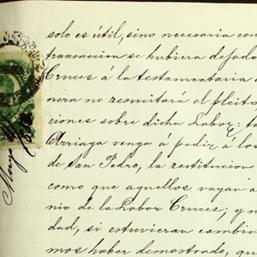 solo es útil, sino necesaria con
transaccion se hubiera dejado
Cruces á la testamentaría
nera no resucitará el pleito
ciones sobre dicha Labor: 
Arriaga venga á pedir á los
de San Pedro, la restitucion
como que aquellos vayan á
nio de la Labor Cruces; y n
dad, si estuvieran cambia
mos haber demostrado, qu